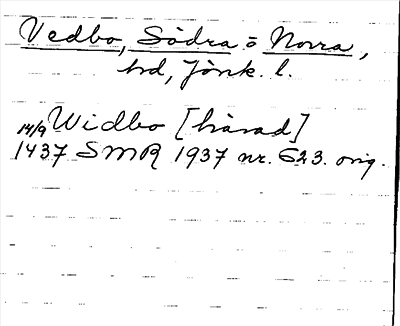 Vedbo, Södra o Norra,
hd, Jönk. l.
14/9 Widbo [härad]
1437 SMR 1937 nr. 623. orig.